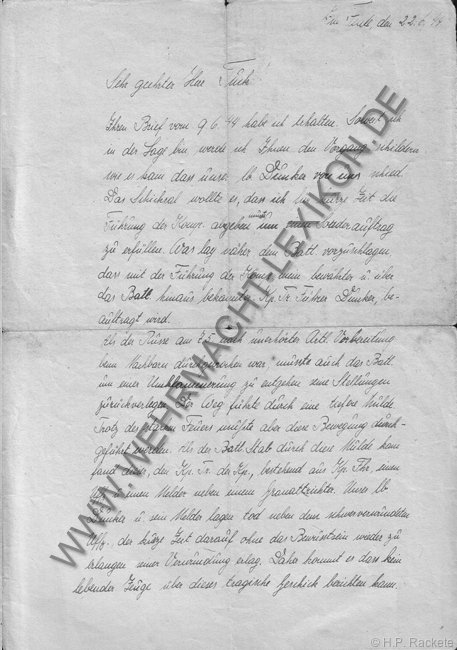 Im Felde, den 22.6.44
Sehr geehrter Herr
Ihren Brief vom 9.6.44 habe ich erhalten. Soweit ich
in der Lage bin werde ich Ihnen den Vorgang schildern
wie es kam dass unser lb Dunker von uns schied.
Das Schicksal wollte es, dass ich für kurze Zeit die
Führung der Komp. abgeben musste um einen Sonderauftrag
zu erfüllen. Was lag näher dem Batl. vorzuschlagen
dass mit der Führung der Komp. mein bewährter u über
das Batl. hinaus bekannter Kp. Tr. Führer Dunker, be-
auftragt wird.
Als der Russe am nach unerhörter Artl. Vorbereitung
beim Nachbarn durchgebrochen war, musste auch das Batl.
um einer Umklammerung zu entgehen seine Stellungen
zurückverlegen. Der Weg führte durch eine tiefere Mulde.
Trotz des starken Feuers musste aber diese Bewegung durch-
geführt werden. Als der Batl. Stab durch diese Mulde kam
fand dieser, den Kp. Tr. der Kp., bestehend aus Kp. Fhr., einem
Uffz. u einem Melder neben einem Granattrichter. Unser lb
Dunker u sein Melder lagen tod neben dem schwerverwundeten
Uffz. der kurze Zeit darauf ohne das Bewustsein wieder zu
erlangen seiner Verwundung erlag. Daher kommt es dass kein
lebender Zeuge über dieses tragische Geschick berichten kann.
WWW.WEHRMACHT-LEXIKON.DE
© H.P. Rackete